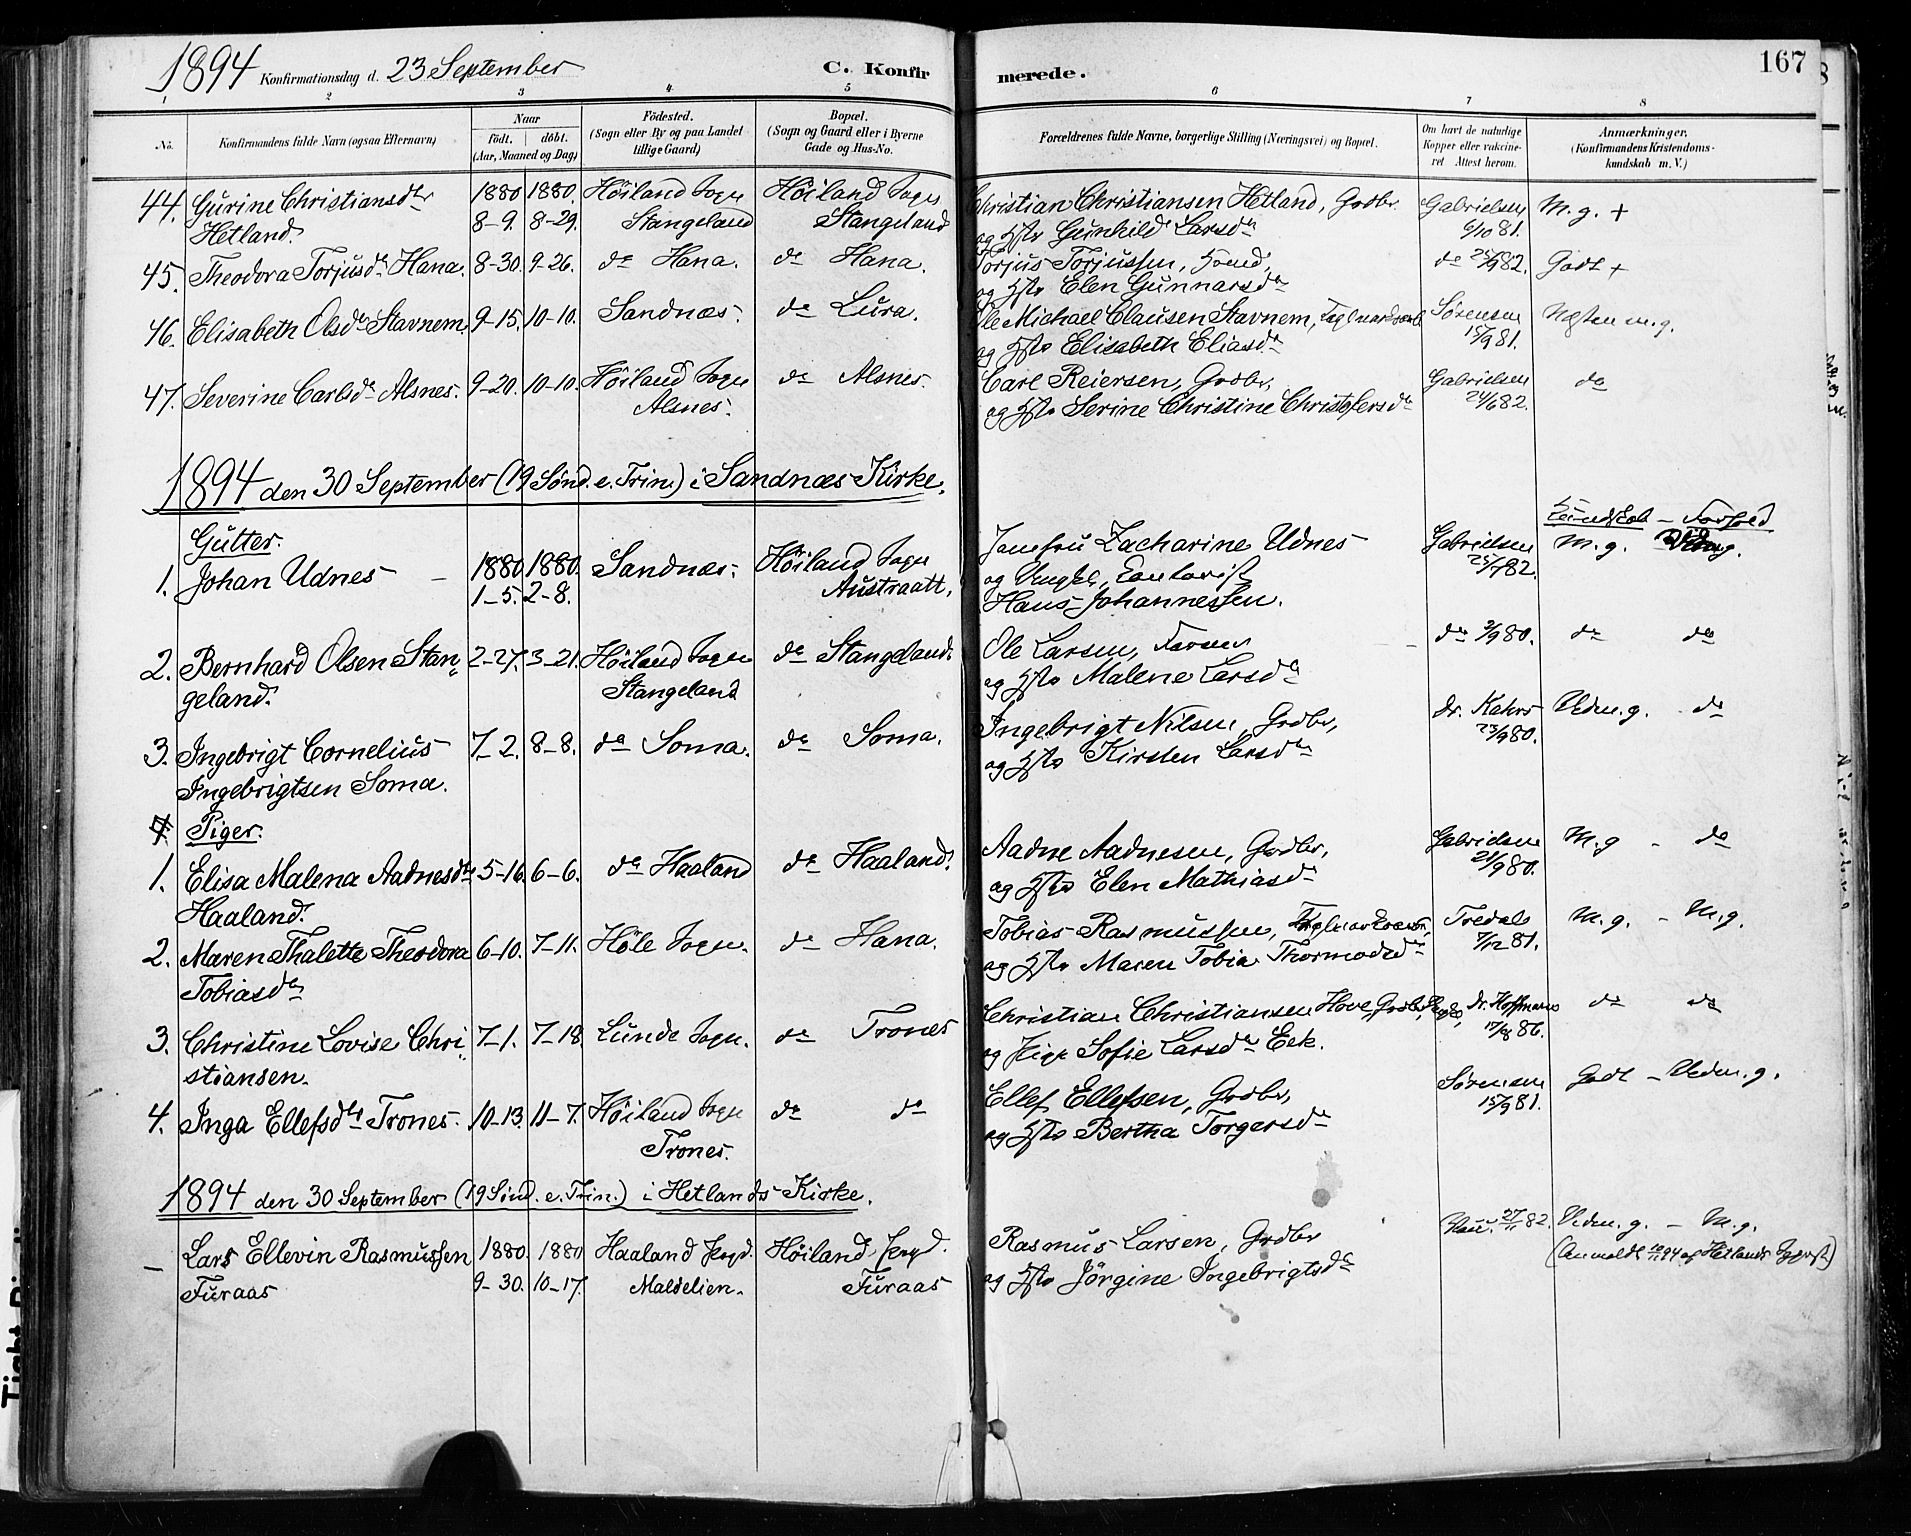 1894 Konfirmationsdag d. 23 September C. Konfir merede. 167
1 2 3 4 5 6 7 8
No. Konfirmandens fulde Navn (ogsaa Efternavn) Naar födt. döbt. (Aar, Maaned og Dag) Födested. (Sogn eller By og paa Landet tillige Gaard) Bopæl. (Sogn og Gaard eller i Byerne Gade og Hus-No. Forældrenes fulde Navne, borgerlige Stilling (Næringsvei) og Bopæl. Om havt de naturlige Kopper eller vaccineret Attest herom. Anmærkninger. (Konfirmandens Kristendomskundskab m. V.)
44. Gurine Christiansdtr 1880 1880. Höiland Sogn Höiland Sogn Christian Christiansen Hetland, Grdbr. Gabrielsen M.g. +
Hetland. 8-9. 8-29. Stangeland Stangeland og Hstr Gunhild Larsdr 6/10 81.
45. Theodora Torjusdr Hana. 8-30. 9-26. do Hana. do Hana. Torjus Torjussen, do 25/9 82. Godt +
og Hstr Elen Gunnarsdr
46. Elisabeth Olsdr Stavnem 9-15. 10-10. Sandnæs. do Lura. Ole Michael Clausen Stavnem, Sörensen Næsten m.g.
og Hstr Elisabeth Eliasdr 15/9 81.
47. Severine Carlsdr Alsnes. 9-20. 10-10. Höiland Sogn do Alsnes. Carl Reiersen, Grdbr, Gabrielsen do
Alsnes. og Hstr Serine Christine Christofersdr 24/6 82.
1894 den 30 September (19 Sönd. e. Trin.) i Sandnæs Kirke.
Gutter. Kundskab - Forhold
1. Johan Udnes 1880 1880. Sandnæs. Höiland Sogn Jomfru Zacharine Udnes Gabrielsen M.g.
1-5. 2-8. Austraatt. og Ungkl, 25/7 82.
Hans Johannessen.
2. Bernhard Olsen Stan 2-27. 3-21. Höiland Sogn do Stangeland. Ole Larsen, do 3/9 80. do do
geland. Stangeland og Hstr Malene Larsdr
3. Ingebrigt Cornelius 7-2. 8-8. do Soma. do Soma. Ingebrigt Nilsen, Grdbr, Dr. Kahrs Vidm.g. - do
Ingebrigtsen Soma. og Hstr Kirsten Larsdtr 23/9 80.
Piger.
1. Elisa Malena Aadnesdtr 5-16. 6-6. do Haaland do Haaland. Aadne Aadnesen, Grdbr, Gabrielsen M.g - do
Haaland. og Hstr Elen Mathiasdr 21/9 80.
2. Maren Thalette Theodora 6-10. 7-11. Höle Sogn. do Hana. Tobias Rasmussen, Tredal M.g. - M.g.
Tobiasdr og Hstr Maren Tobia Thormodsdr 7/12 81.
3. Christine Lovise Chri 7-1. 7-18. Lunde Sogn. do Trones Christian Christiansen Hove, Grdbr, Dr. Hoffmann do do
stiansen. og Pige Sofie Larsdr Eek. 86.
4. Inga Ellefsdtr Trones. 10-13. 11-7. Höiland Sogn do do Ellef Ellefsen, Grdbr, Sörensen Godt - Vidm.g.
Trones. og Hstr Bertha Torgersdr 15/9 81.
1894 den 30 September (19 Sönd. e. Trin.) i Hetlands Kirke.
- Lars Ellevin Rasmussen 1880. 1880 Haaland Prgd. Höiland Prgd. Rasmus Larsen, Grdbr 27/11 82. Vidm.g. - M.g.
Furaas 9-30. 10-17. Maldelien. Furaas og Hstr Jörgine Ingebrigtsdr (Anmeldt af Hetlands)